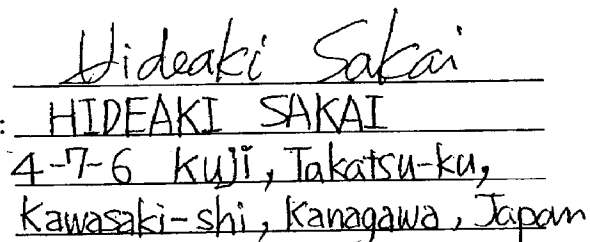 Hideaki Sakai
: HIDEAKI SAKAI
4-7-6 Kuji, Takatsu-ku,
Kawasaki-shi, Kanagawa, Japan